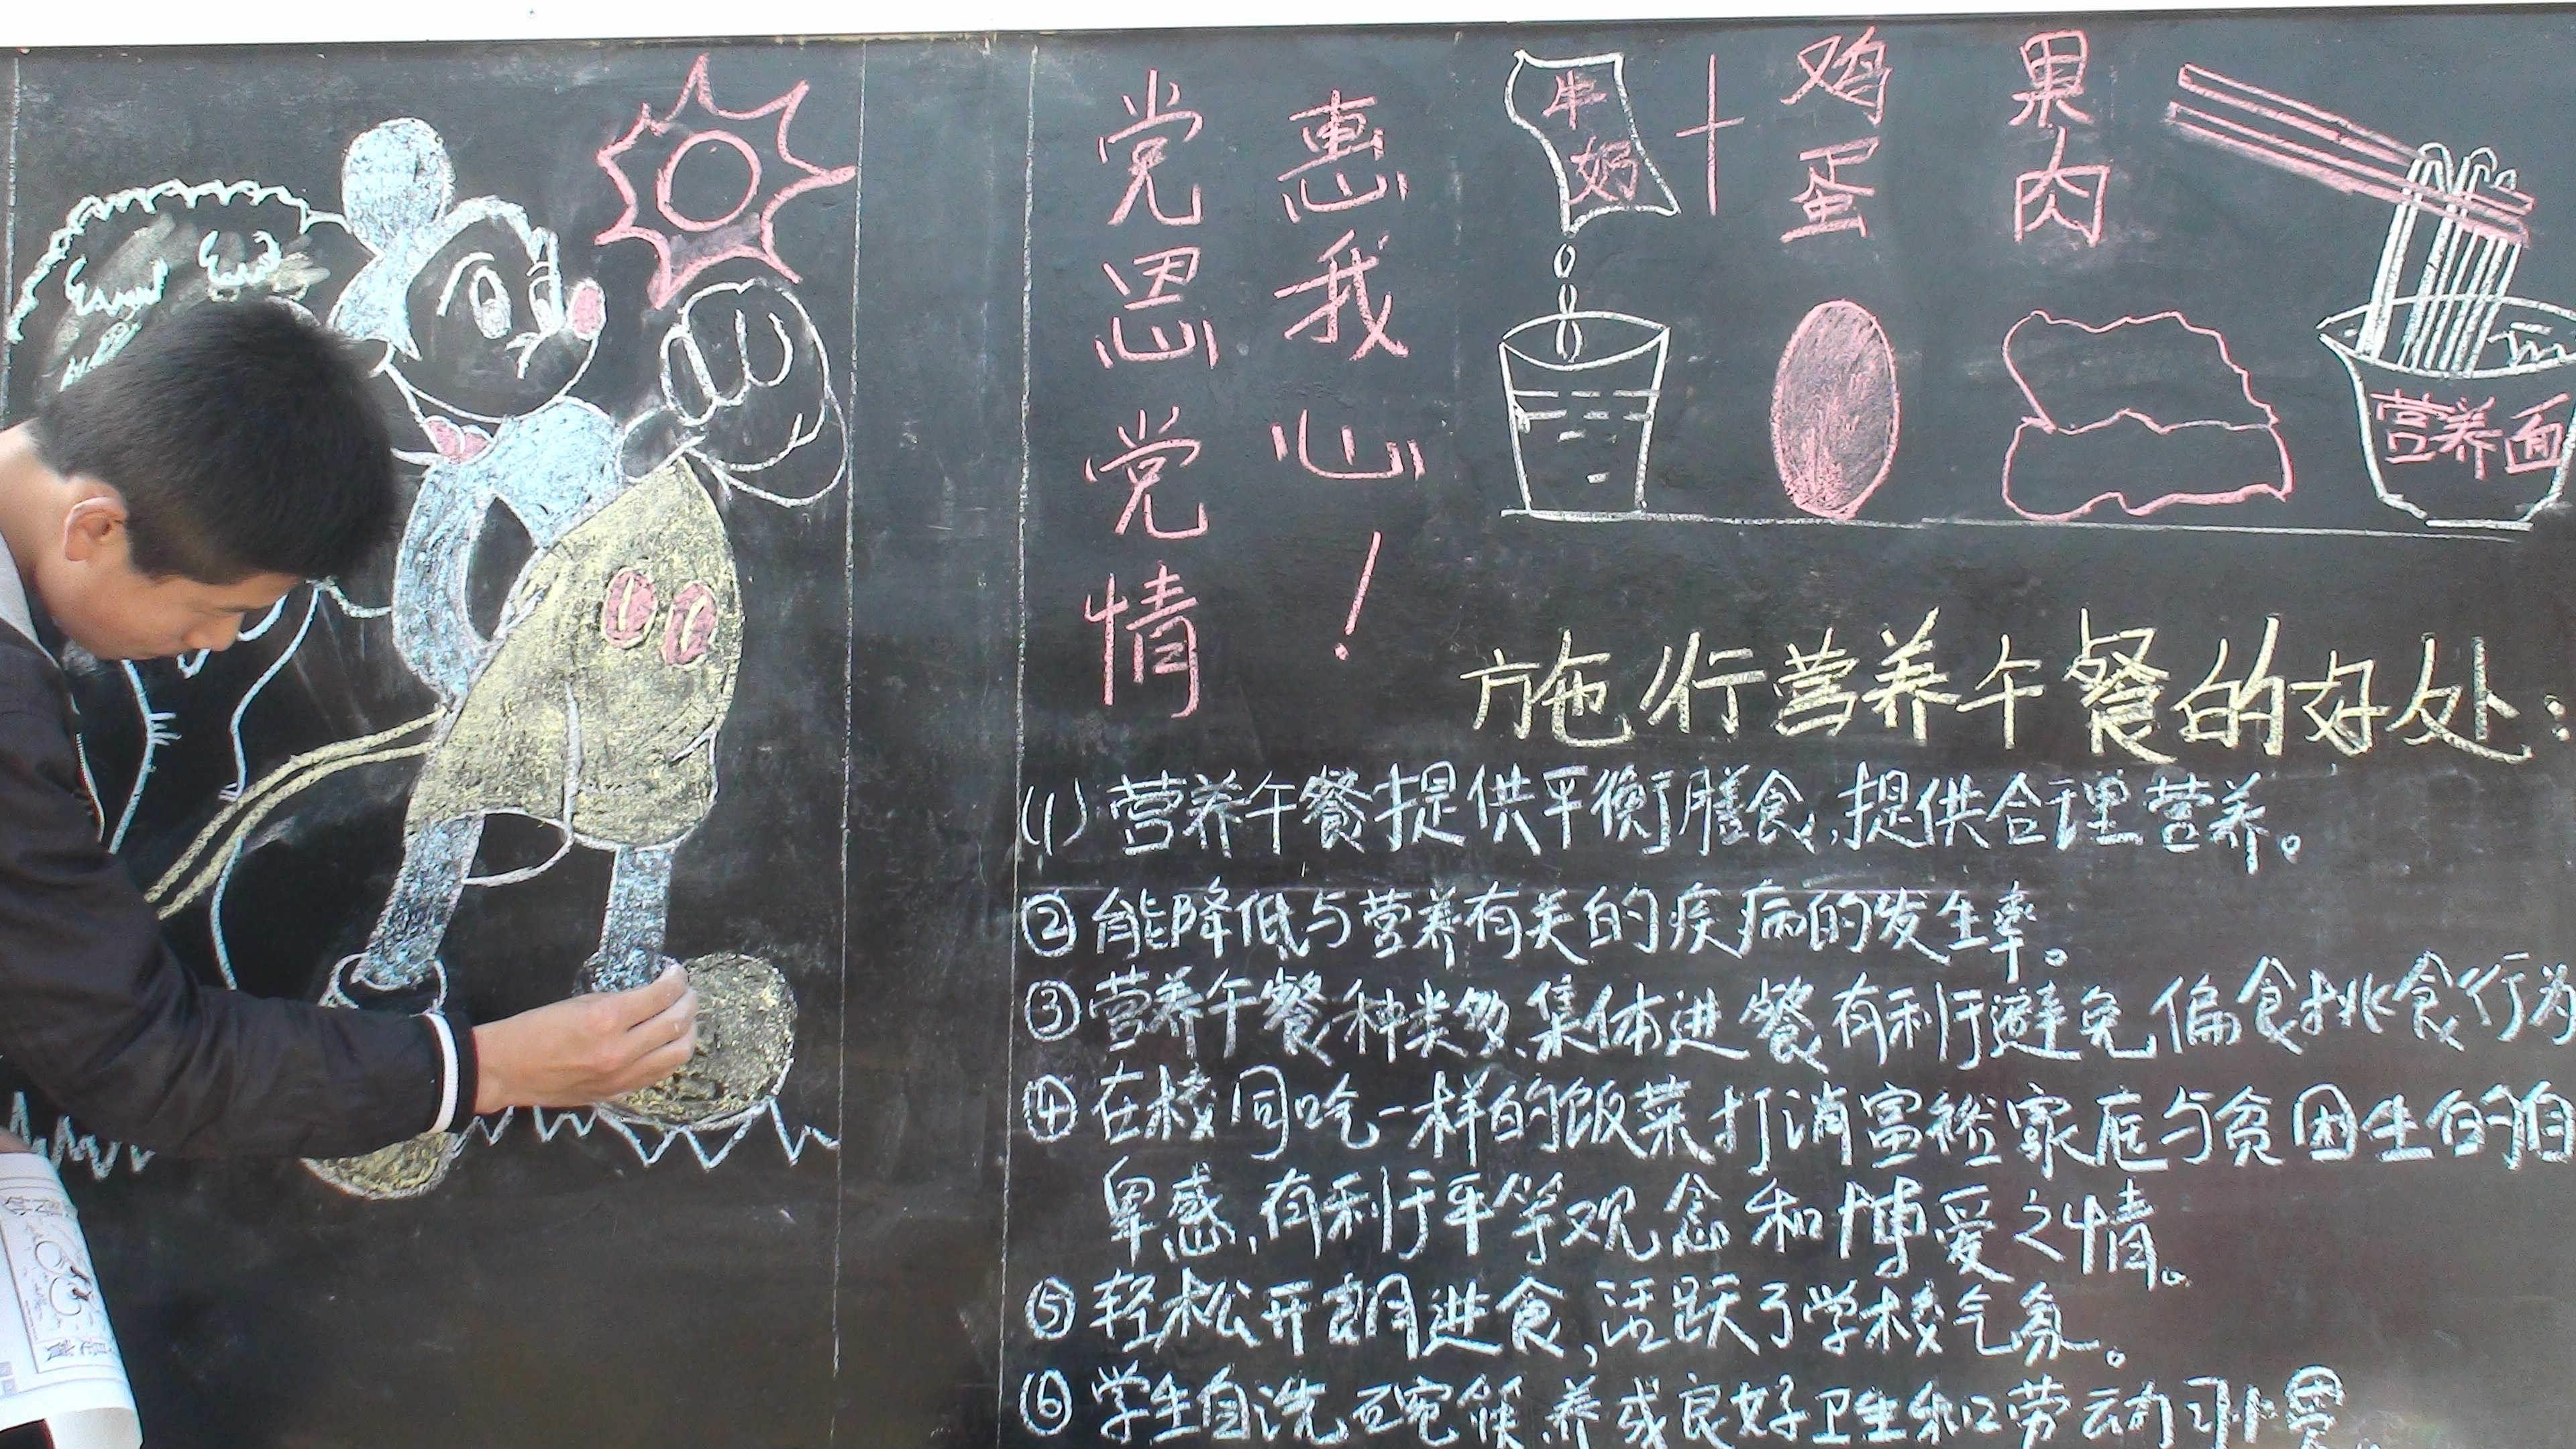 党恩党情
惠我心！
牛奶
十
鸡蛋
果肉
营养面
施行营养午餐的好处：
(1) 营养午餐提供平衡膳食,提供合理营养。
② 能降低与营养有关的疾病的发生率。
③ 营养午餐种类多、集体进餐有利于避免偏食挑食行为
④ 在校同吃一样的饭菜打消富裕家庭与贫困生的自
卑感,有利于平等观念和博爱之情。
⑤ 轻松开朗进食,活跃了学校气氛。
⑥ 学生自洗碗筷养成良好卫生和劳动习惯。